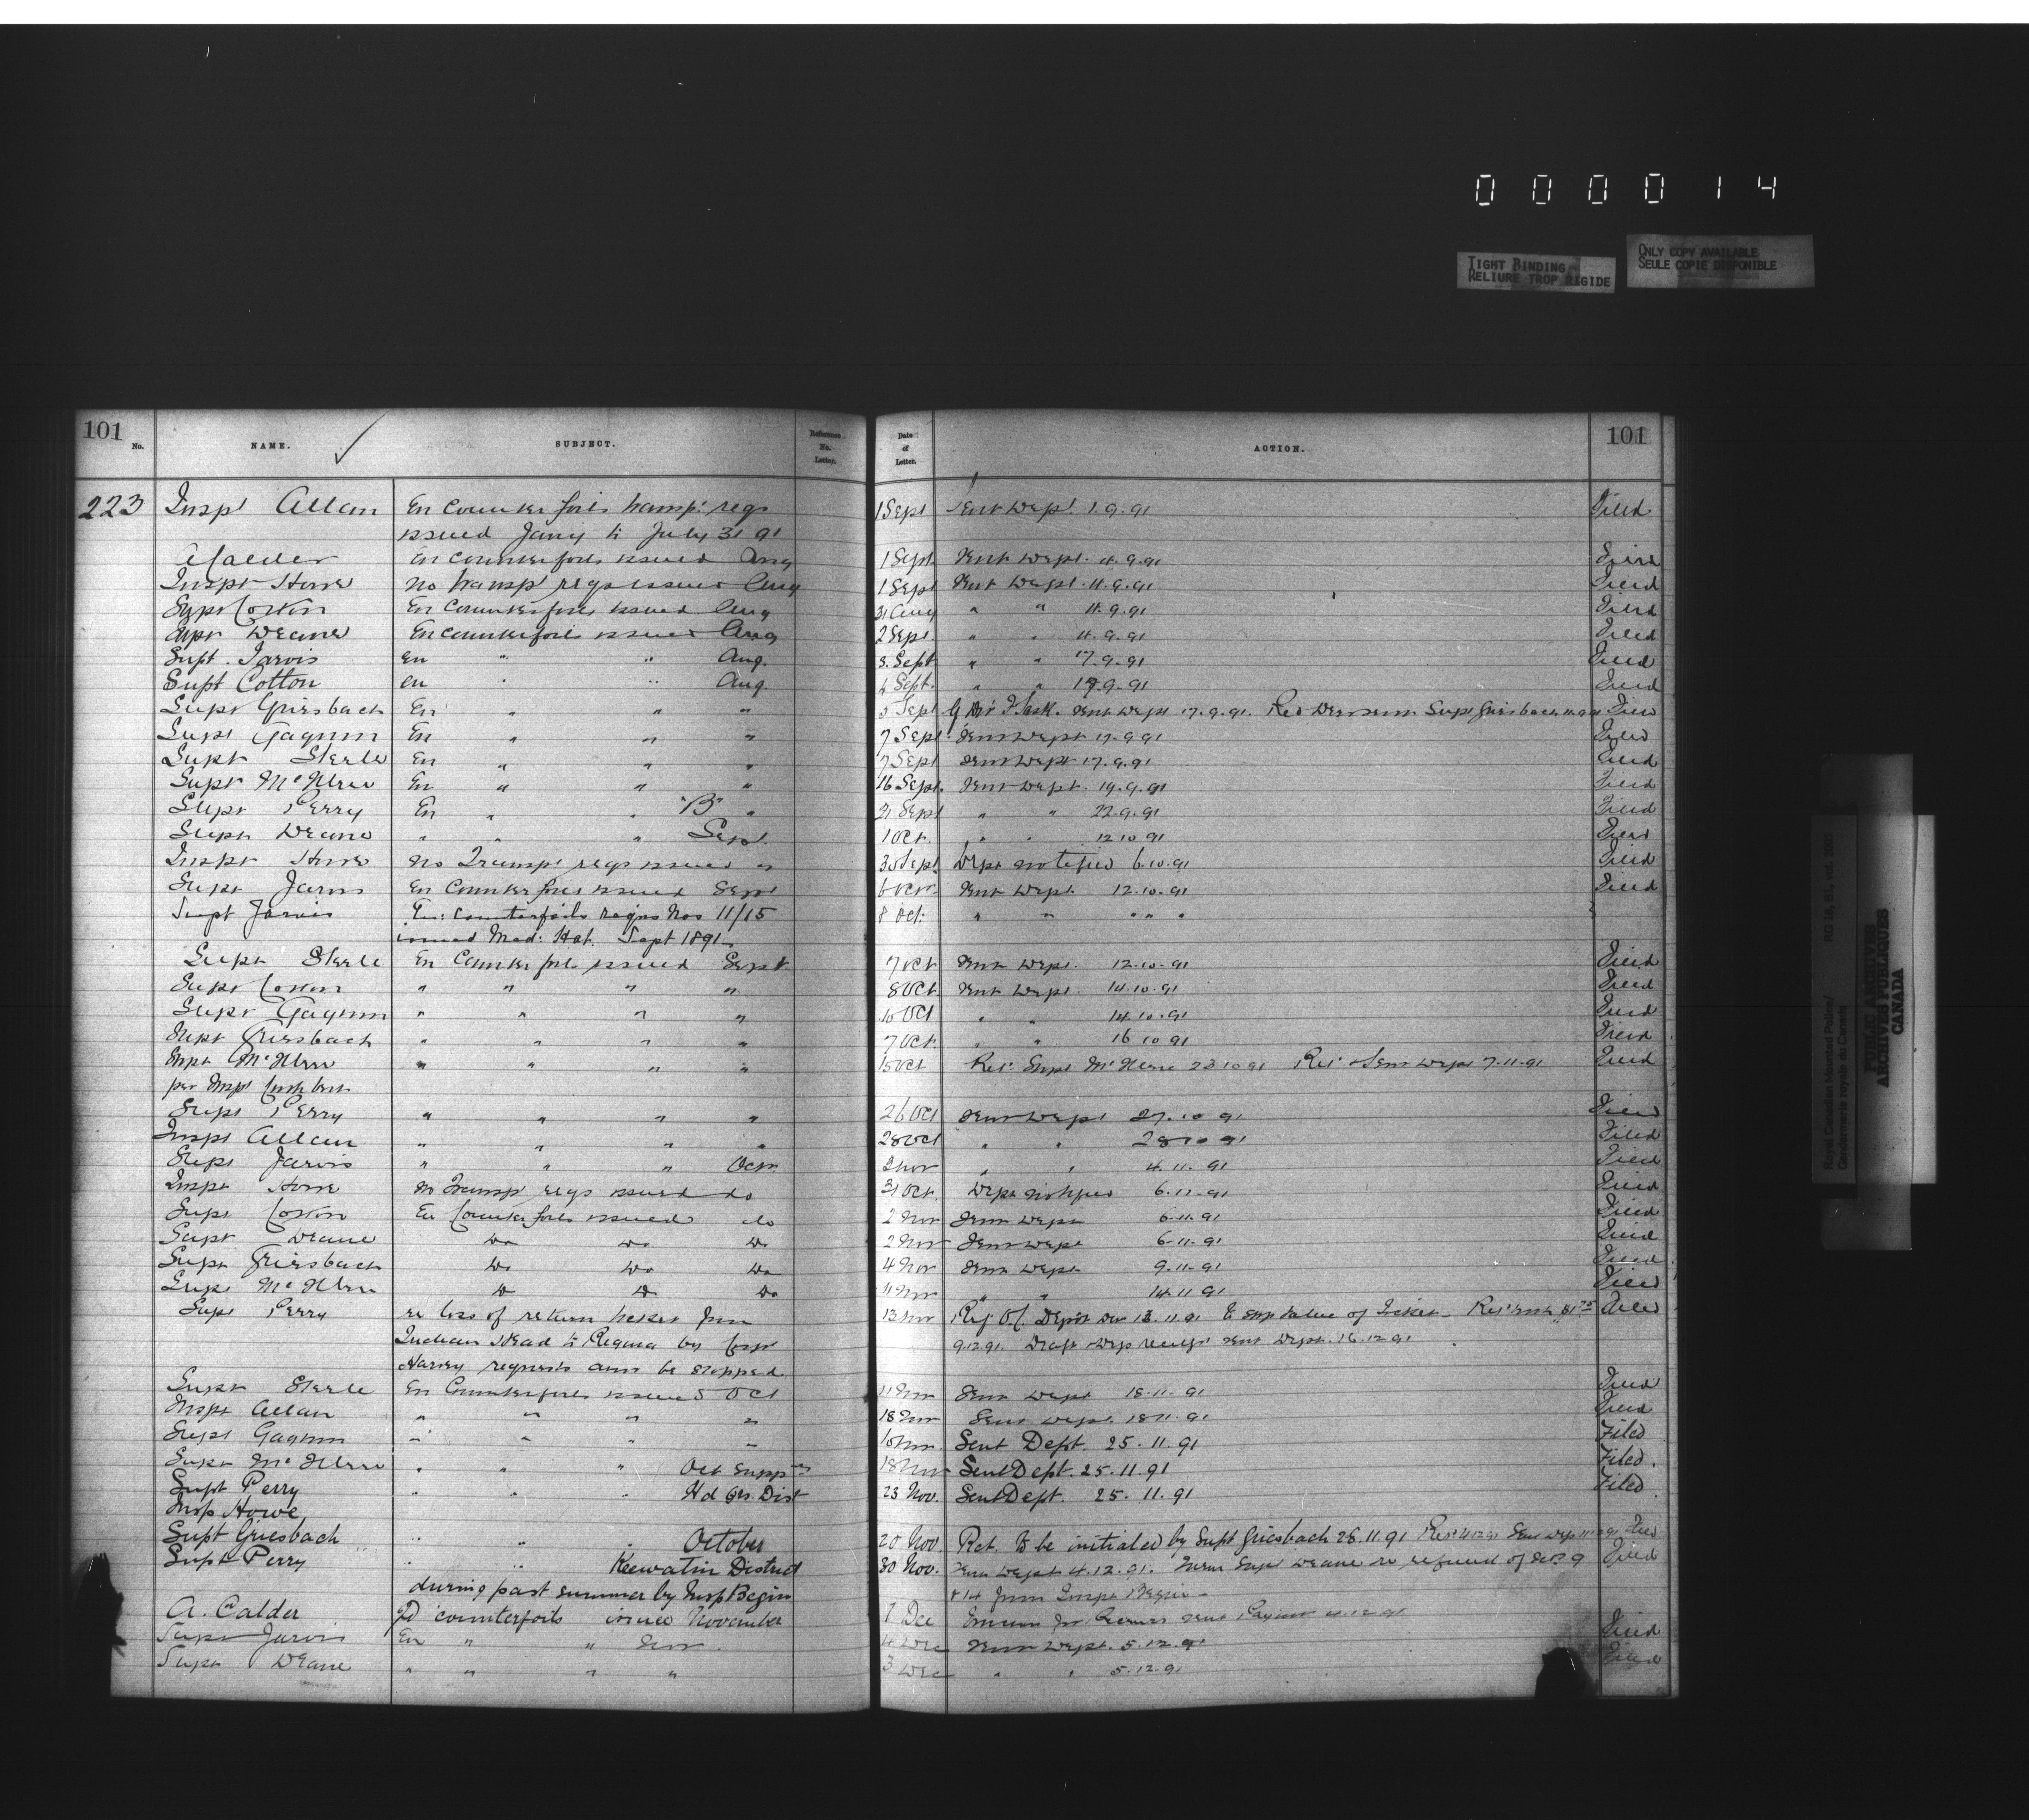 0 0 0 0 1 4
TIGHT BINDING
RELIURE TROP RIGIDE
ONLY COPY AVAILABLE
SEULE COPIE DISPONIBLE
101 No. NAME. SUBJECT. Reference No. Letter. Date of Letter. ACTION. 101
223 Insp Allan En Counterfoils transp: regs 1 Sept Sent Dept 1.9.91 Filed
issued Jany to July 31 91
A Calder En Counterfoils issued Aug 1 Sept Sent Dept. 11.9.91 Filed
Inspr Howe No transp regs issued Aug 1 Sept Sent Dept. 11.9.91 Filed
Cotton En Counterfoils issued Aug 31 Aug " " 11.9.91 Filed
Deane En Counterfoils issued Aug 2 Sept " " 11.9.91 Filed
Supt. Jarvis En " " Aug. 3. Sept " " 17.9.91 Filed
Supt Cotton En " " Aug. 4 Sept. " " 17.9.91 Filed
Supt Griesbach En " " " 5 Sept Sent Dept 17.9.91. Supt Griesbach Filed
Supt Gagnon En " " " 7 Sept Sent Dept 17.9.91 Filed
Supt Steele En " " " 7 Sept Sent Dept 17.9.91 Filed
Supt McIllree En " " " 16 Sept. Sent Dept. 19.9.91 Filed
Supt Perry En " " "B" " 21 Sept " " 22.9.91 Filed
Supt Deane " " " Sept. 1 Oct. " " 12.10.91 Filed
Inspr Howe No Transp regs issued " 30 Sept Dept notified 6.10.91 Filed
Supt Jarvis En Counterfoils issued Sept 6 Oct Sent Dept. 12.10.91 Filed
Supt Jarvis En: counterfoils reqns Nos 11/15 8 Oct: " " " " "
issued Med: Hat. Sept 1891.
Supt Steele En Counterfoils issued Sept 7 Oct Sent Dept. 12.10.91 Filed
Supt Cotton " " " " 8 Oct. Sent Dept 14.10.91 Filed
Supt Gagnon " " " " 10 Oct " " 14.10.91 Filed
Supt Griesbach " " " " 7 Oct. " " 16 10 91 Filed
Supt McIllree " " " " 15 Oct Ret. Supt McIllree 23 10 91 Ret. & Sent Dept 7.11.91 Filed
per Inspr Cuthbert
Supt Perry " " " " 26 Oct Sent Dept 27.10 91 Filed
Inspr Allan " " " " 28 Oct " " 28 10 91 Filed
Supt Jarvis " " " Oct. 2 Nov " " 4.11.91 Filed
Inspr Howe No Transp regs issued do 31 Oct. Dept notified 6.11.91 Filed
Supt Cotton En Counterfoils issued do 2 Nov Sent Dept 6.11.91 Filed
Supt Deane Do Do Do 2 Nov Sent Dept 6.11.91 Filed
Supt Griesbach Do Do Do 4 Nov Sent Dept 9.11.91 Filed
Supt McIllree Do Do Do 11 Nov " " 14.11.91 Filed
Supt Perry re loss of return ticket from 13 Nov value of Ticket Filed
Indian Head to Regina by Corpl 9.12.91. Sent Dept. 16.12.91
Harvey requests amt be stopped
Supt Steele En Counterfoils issued Oct 11 Nov Sent Dept 18.11.91 Filed
Inspr Allan " " " " 18 Nov Sent Dept. 18.11.91 Filed
Supt Gagnon " " " " 10 Nov. Sent Dept. 25.11.91 Filed
Supt McIllree " " " Oct Suppy 18 Nov Sent Dept. 25.11.91 Filed.
Supt Perry " " " Hd Qrs. Dist 23 Nov. Sent Dept. 25.11.91 Filed
Insp Howe
Supt Griesbach " " " October 20 Nov. Ret. To be initialed by Supt Griesbach 28.11.91 Filed
Supt Perry " " Keewatin District 30 Nov. Sent Dept 4.12.91. Supt Deane re refund of Filed
during past summer by Insp Begin & 14 from Inspr Begin
A. Calder counterfoils issued November 1 Dec
Supt Jarvis En " " Nov. 4 Dec Sent Dept. 5.12.91 Filed
Supt Deane " " " " 3 Dec " " 5.12.91 Filed
Royal Canadian Mounted Police/
Gendarmerie royale du Canada
PUBLIC ARCHIVES
ARCHIVES PUBLIQUES
CANADA